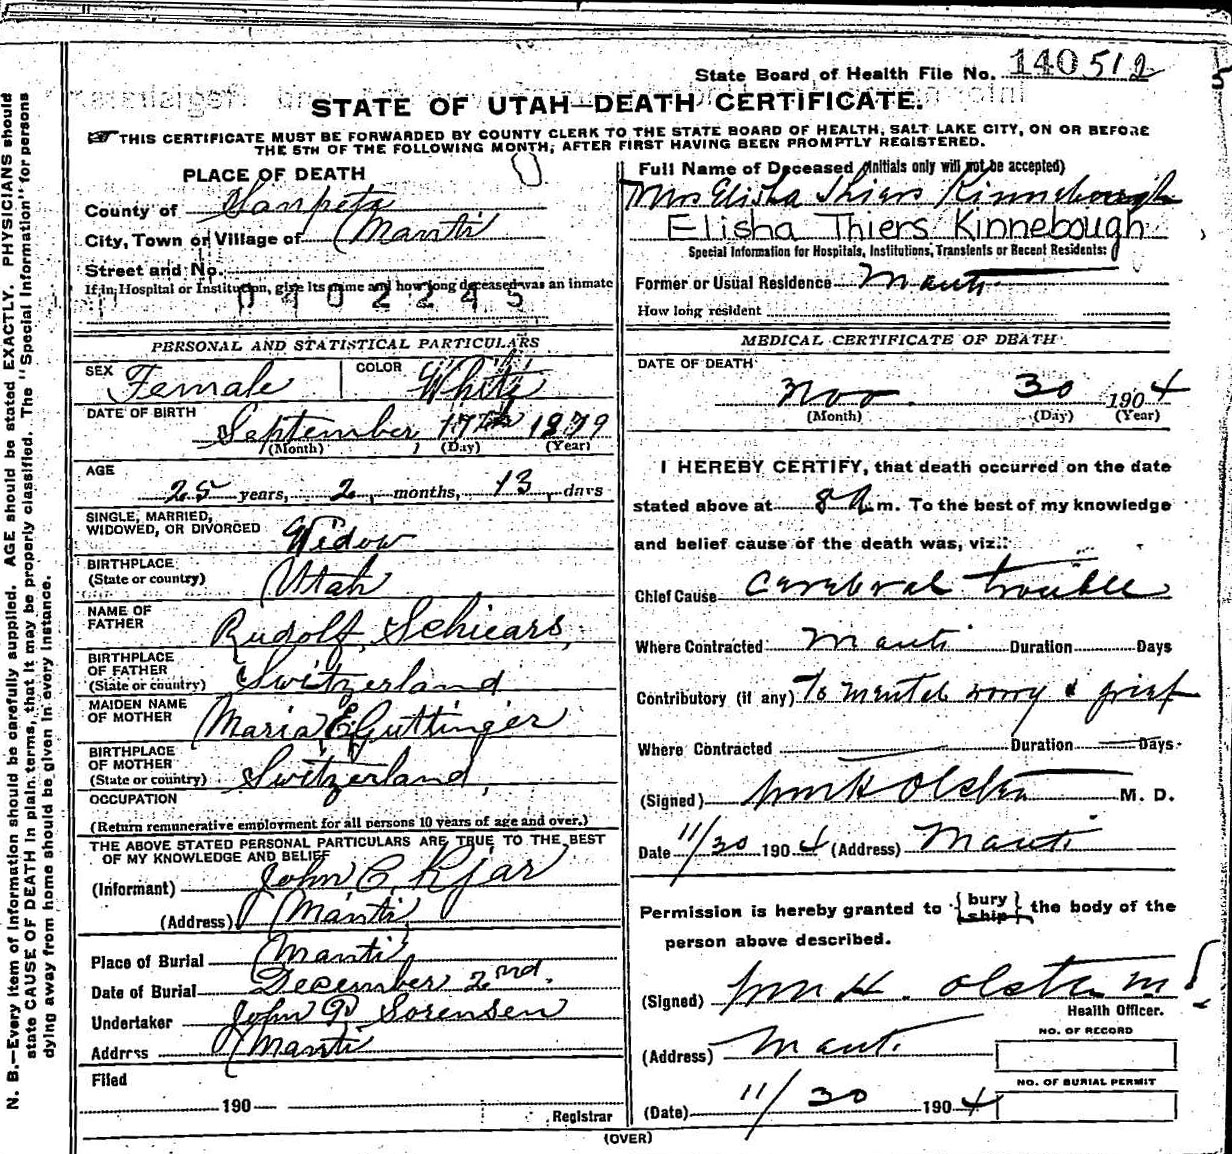 State Board of Health File No. 140512
STATE OF UTAH—DEATH CERTIFICATE.
THIS CERTIFICATE MUST BE FORWARDED BY COUNTY CLERK TO THE STATE BOARD OF HEALTH, SALT LAKE CITY, ON OR BEFORE
THE 5TH OF THE FOLLOWING MONTH, AFTER FIRST HAVING BEEN PROMPTLY REGISTERED.
PLACE OF DEATH
County of Sanpete
City, Town or Village of Manti
Street and No.
If in Hospital or Institution, give its name and how long deceased was an inmate
0402245
PERSONAL AND STATISTICAL PARTICULARS
SEX Female COLOR White
DATE OF BIRTH
September 17th 1879
(Month) (Day) (Year)
AGE
25 years, 2 months, 13 days
SINGLE, MARRIED,
WIDOWED, OR DIVORCED Widow
BIRTHPLACE
(State or country) Utah
NAME OF
FATHER Rudolf
BIRTHPLACE
OF FATHER
(State or country) Switzerland
MAIDEN NAME
OF MOTHER Maria E Guttinger
BIRTHPLACE
OF MOTHER
(State or country) Switzerland
OCCUPATION
(Return remunerative employment for all persons 10 years of age and over.)
THE ABOVE STATED PERSONAL PARTICULARS ARE TRUE TO THE BEST
OF MY KNOWLEDGE AND BELIEF
(Informant) John C. Kjar
(Address) Manti
Place of Burial Manti
Date of Burial December 2nd.
Undertaker John P Sorensen
Address Manti
Filed
190
Registrar
Full Name of Deceased (Initials only will not be accepted)
Mrs Elisha Thiers Kinnebough
Elisha Thiers Kinnebough
Special Information for Hospitals, Institutions, Transients or Recent Residents:
Former or Usual Residence Manti
How long resident
MEDICAL CERTIFICATE OF DEATH
DATE OF DEATH
Nov. 30 1904
(Month) (Day) (Year)
I HEREBY CERTIFY, that death occurred on the date
stated above at 8 A.m. To the best of my knowledge
and belief cause of the death was, viz.:
Chief Cause Cerebral trouble
Where Contracted Manti Duration Days
Contributory (if any) To mental worry & grief
Where Contracted Duration Days
(Signed) Wm H Olsten M. D.
Date 11/30 1904 (Address) Manti
Permission is hereby granted to {bury ship} the body of the
person above described.
(Signed) Wm H. Olsten M D
Health Officer.
(Address) Manti
NO. OF RECORD
NO. OF BURIAL PERMIT
(Date) 11/30 1904
(OVER)
N. B.—Every item of information should be carefully supplied. AGE should be stated EXACTLY. PHYSICIANS should
state CAUSE OF DEATH in plain terms, that it may be properly classified. The "Special Information" for persons
dying away from home should be given in every instance.